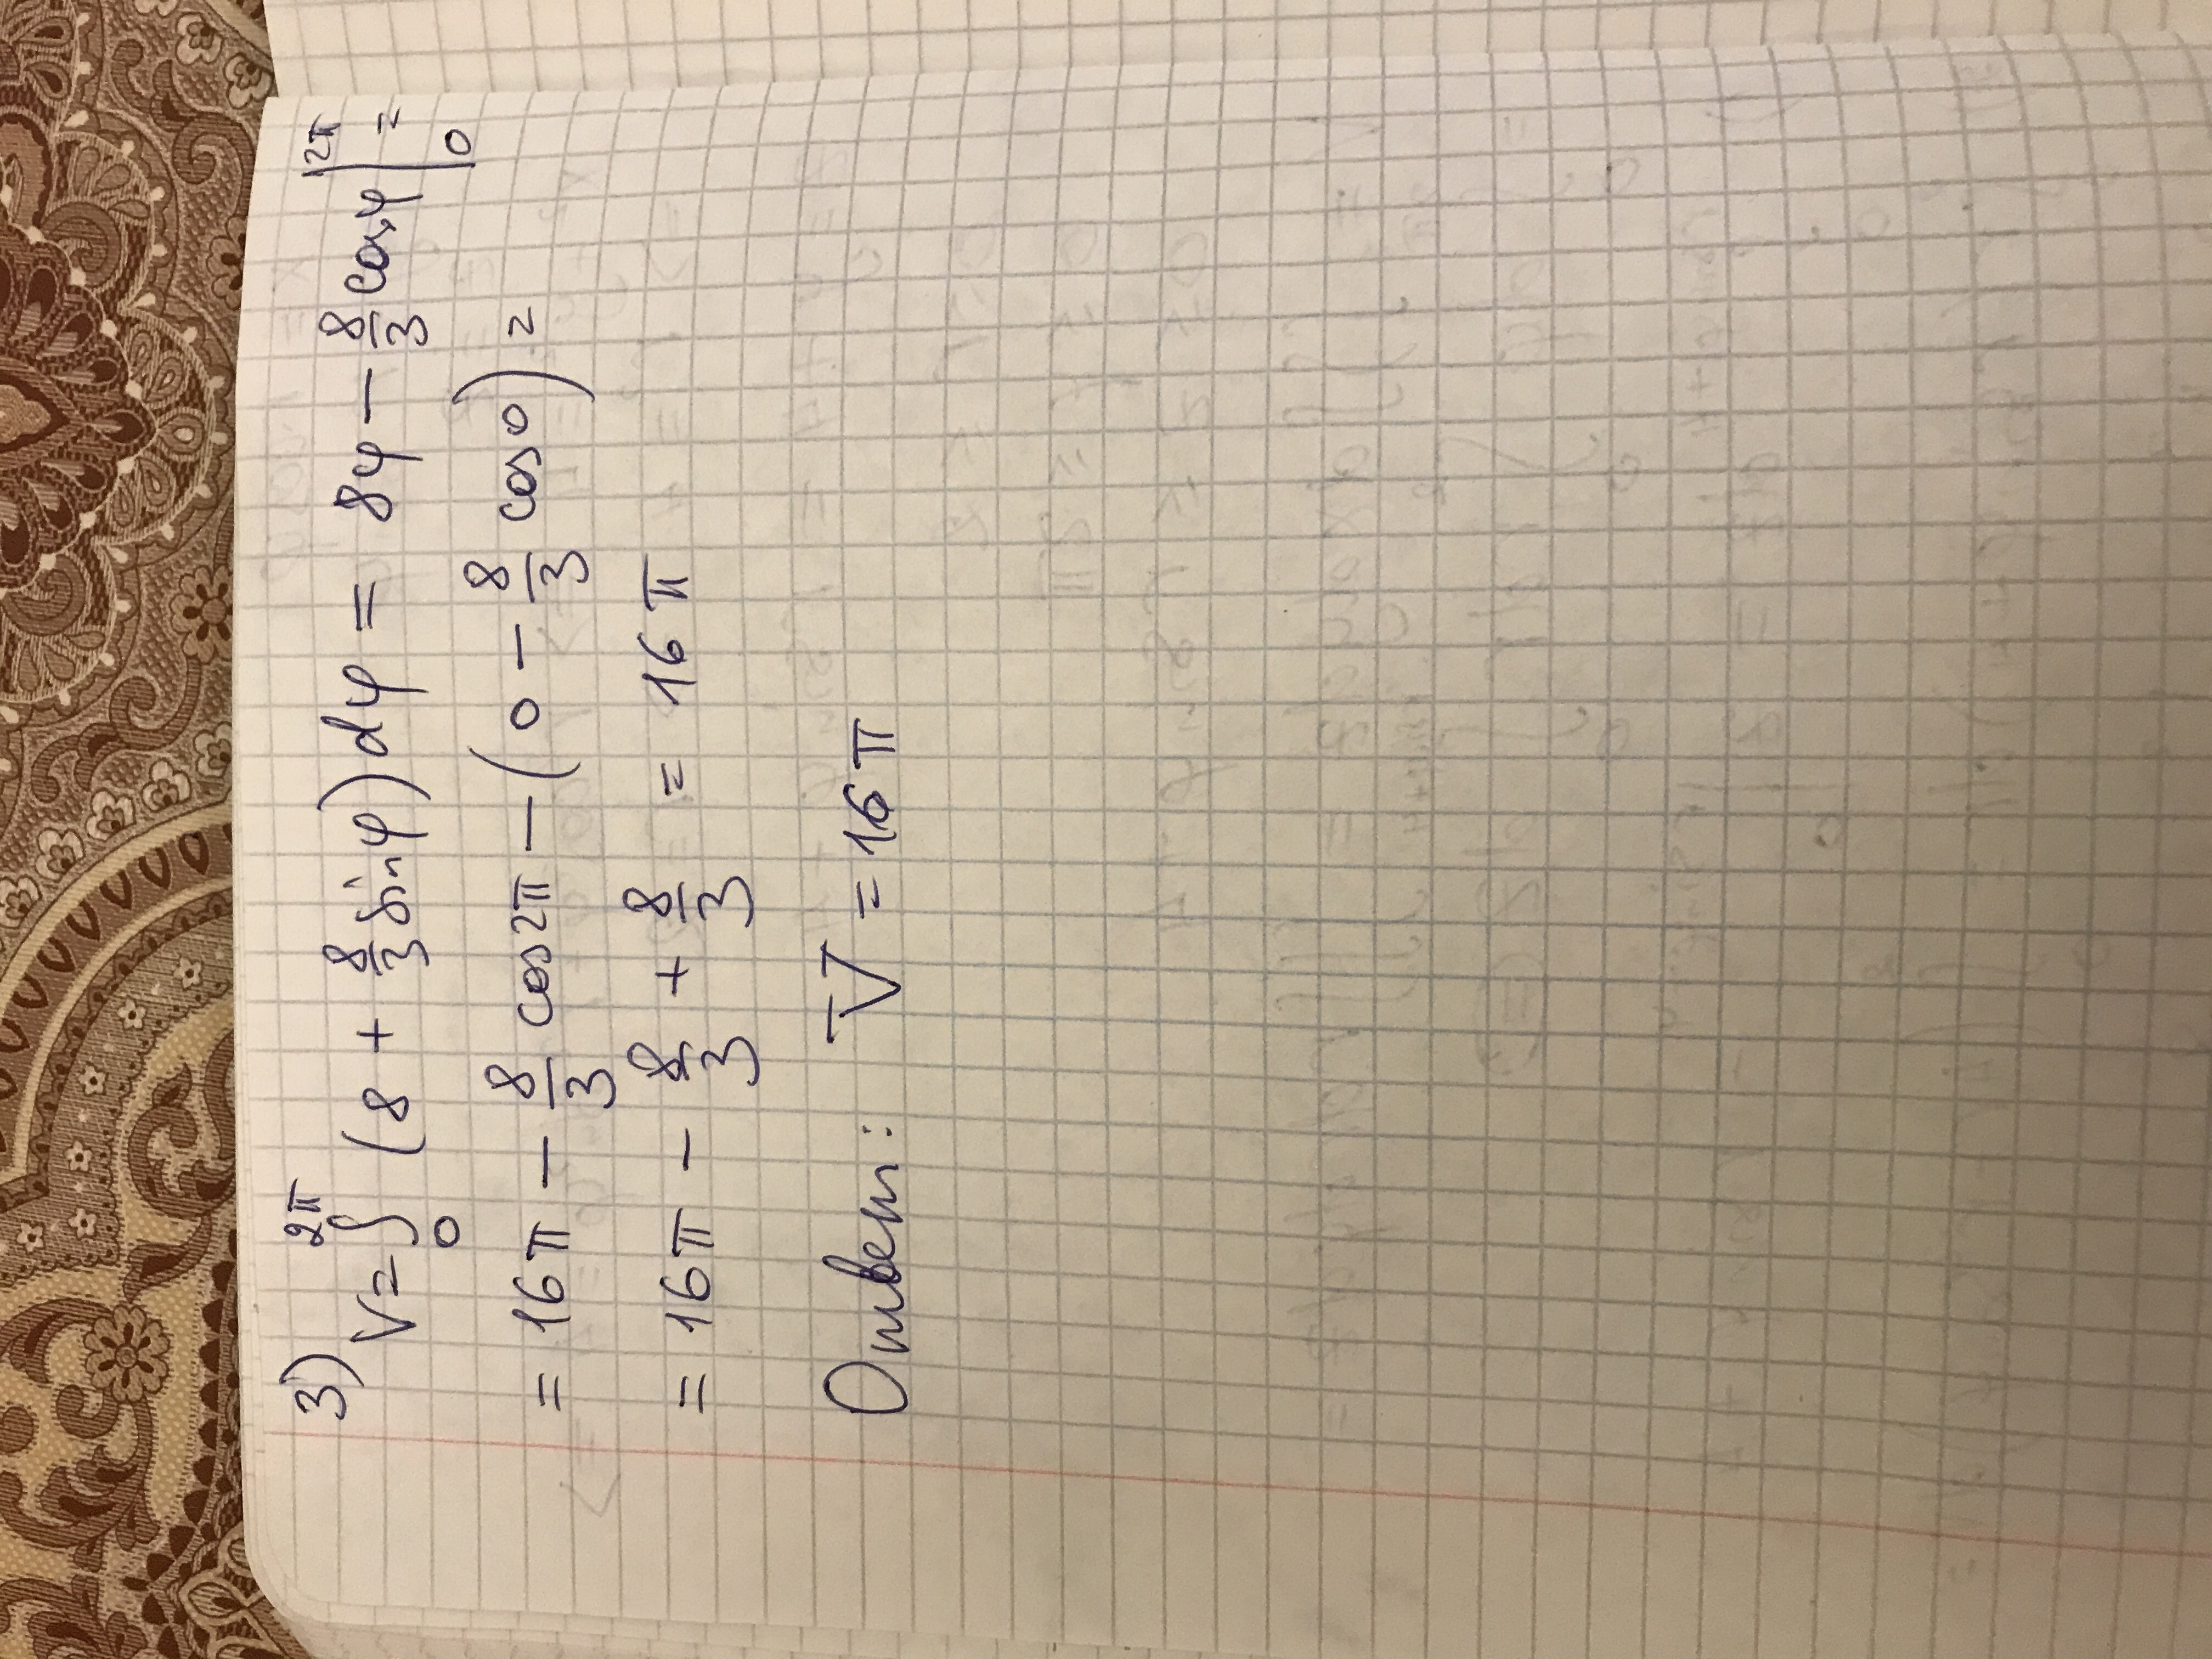 3)
V = ∫₀^{2π} (8 + 8/3 sin φ) dφ = 8φ − 8/3 cos φ |₀^{2π} =
= 16π − 8/3 cos 2π − (0 − 8/3 cos 0) =
= 16π − 8/3 + 8/3 = 16π
Ответ: V = 16π